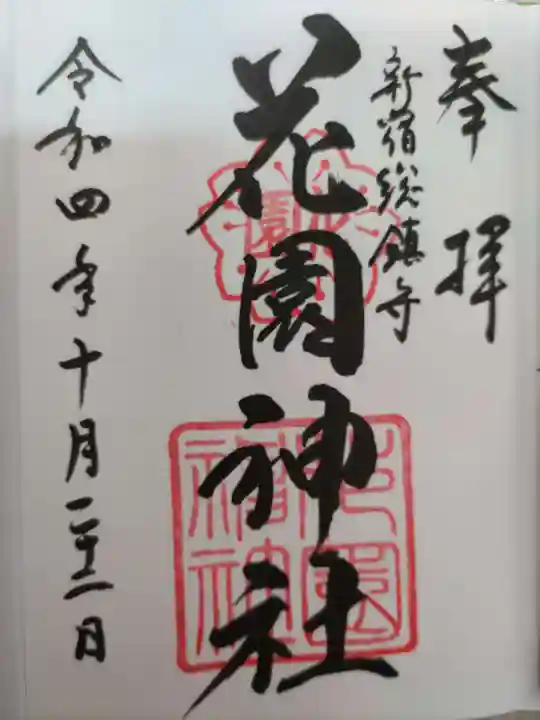 奉拝
新宿総鎮守
花園神社
令和四年十月二十二日